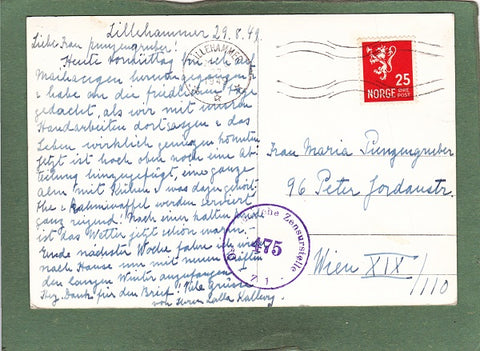 Lillehammer 29.8.49
Liebe Frau Punzengruber!
Heute Vormittag für sich auf
Maihaugen
habe an die friedlichen Tage
gedacht, als wir mit unseren
Handarbeiten dortsassen & das
Leben wirklich geniessen konnten
Jetzt ist hoch oben noch eine Ab-
teilung hinzugefügt, eine ganze
alm mit Kühen & was dazu gehört
& Rahmwaffel werden serviert
ganz reizend! Nach einer kalten
ist das Wetter jetzt schön warm.
Ende nächster Woche fahre ich wieder
nach Hause um mit neuen Kräften
den langen Winter anzufangen.
Herz. Dank für den Brief! Viele Grüsse
von Ihrer Lalla
LILLEHAMMER
25
NORGE
POST
Frau Maria Punzengruber
96 Peter Jordanstr.
Wien XIX
/110
Zensurstelle
475